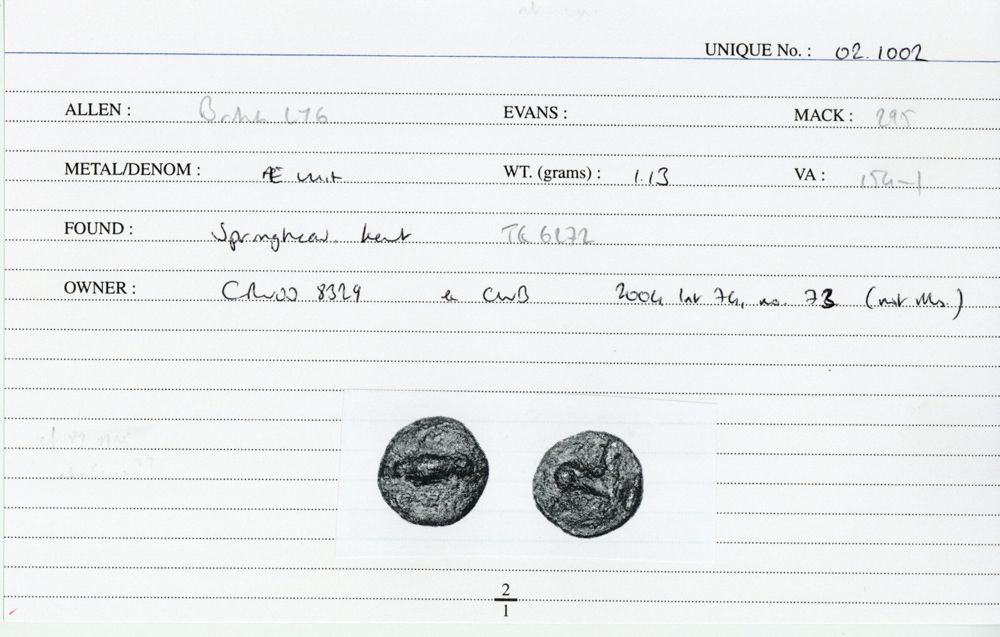 UNIQUE No. : 02.1002
ALLEN : EVANS : MACK : 295
METAL/DENOM : Æ unit WT. (grams) : 1.13 VA : 154-1
FOUND : Springhead Kent TQ 6272
OWNER : CR 8329 ex CNB 2004 lot 74, no. 73 (not illus.)
2
1